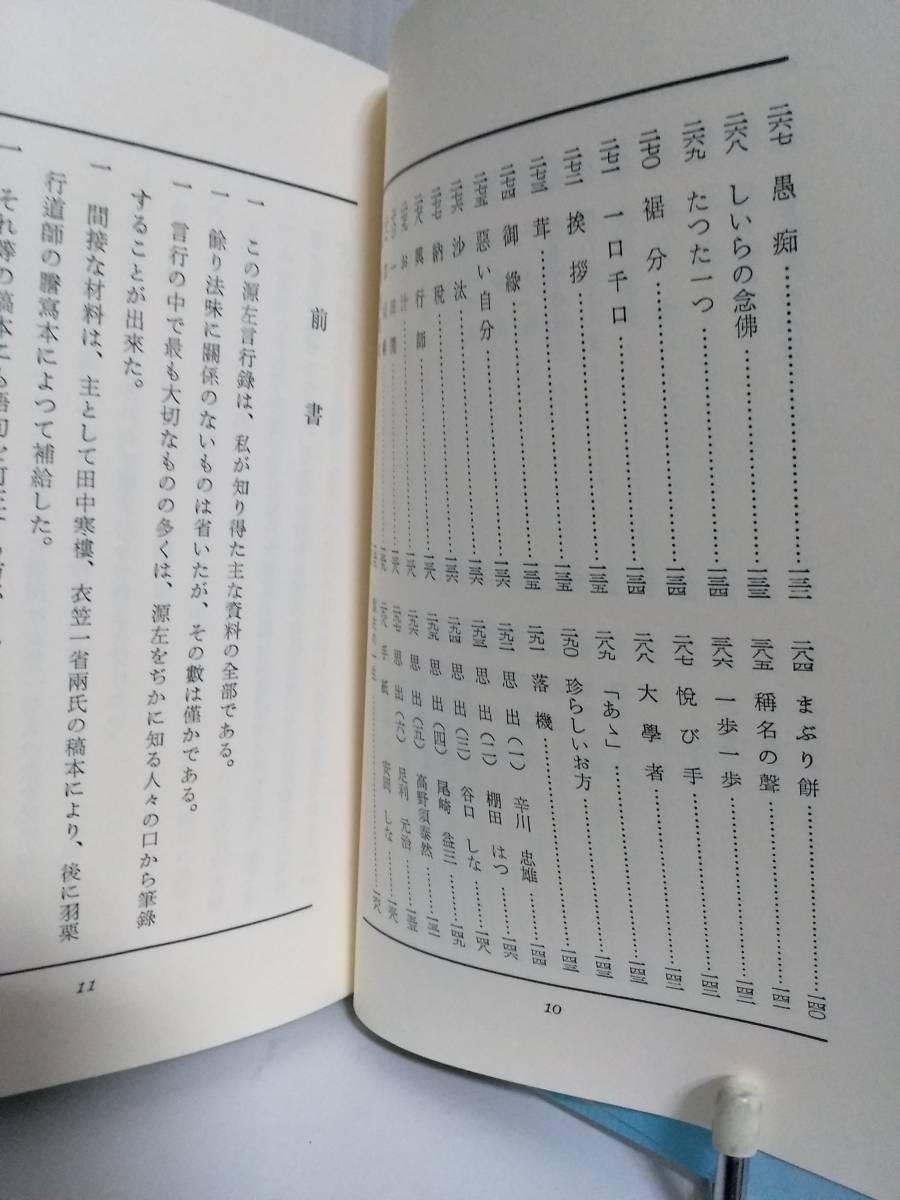 二六七 愚痴……一三二
二六八 しいらの念佛……一三三
二六九 たつた一つ……一三三
二七〇 裾分……一三四
二七一 一口千口……一三四
二七二 挨拶……一三五
二七三 茸……一三五
二七四 御緣……一三五
二七五 惡い自分……一三六
二七六 沙汰……一三六
二七七 納税……一三八
二七八 興行師……一三八
二七九 お汁
二八四 まぶり餅……一四〇
二八五 稱名の聲……一四一
二八六 一歩一歩……一四二
二八七 悅び手……一四二
二八八 大學者……一四三
二八九 「あゝ」……一四三
二九〇 珍らしいお方……一四三
二九一 落機……一四四
二九二 思出(一) 辛川忠雄……一四四
二九三 思出(二) 棚田はつ……一四六
二九四 思出(三) 谷口しな……一四八
二九五 思出(四) 尾崎益三……一四九
二九六 思出(五) 高野須泰然……一五一
二九七 思出(六) 足利元治……一五五
二九八 手紙 安岡しな
10
前書
一 この源左言行錄は、私が知り得た主な資料の全部である。
一 餘り法味に關係のないものは省いたが、その數は僅かである。
一 言行の中で最も大切なものの多くは、源左をぢかに知る人々の口から筆錄
することが出來た。
一 間接な材料は、主として田中寒樓、衣笠一省兩氏の稿本により、後に羽栗
行道師の謄寫本によつて補給した。
一 それ等の稿本
11